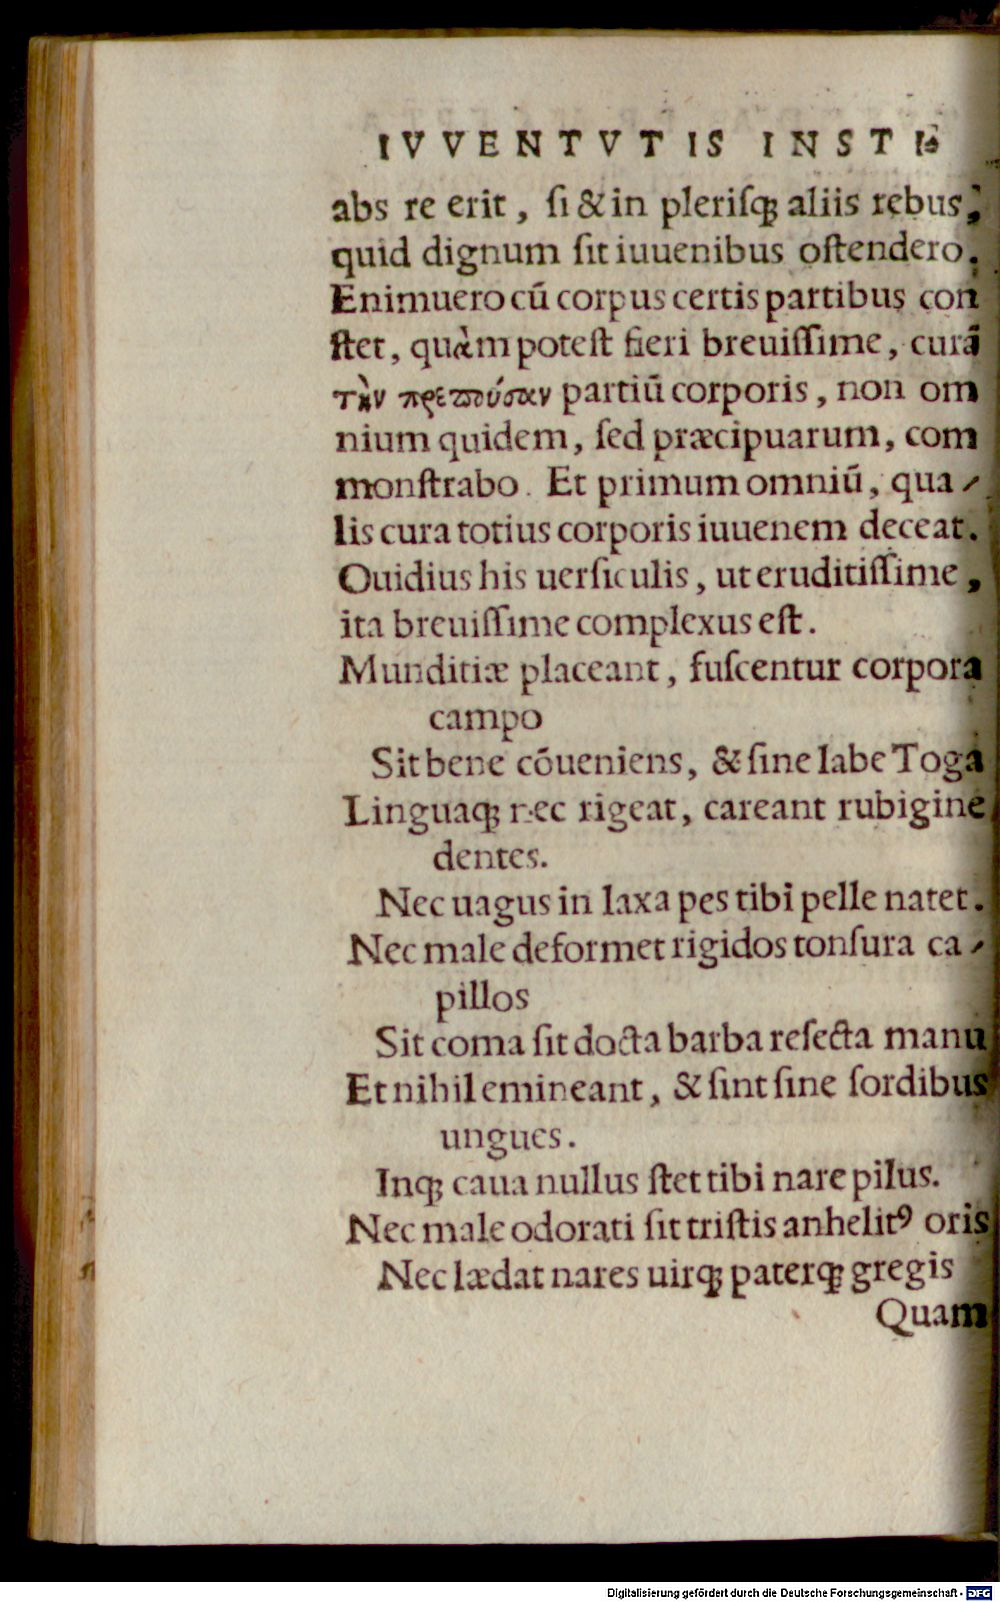 IVVENTVTIS INSTI⸗
abs re erit, ſi & in pleriſq; aliis rebus,
quid dignum ſit iuuenibus oſtendero.
Enimuero cū corpus certis partibus con
ſtet, quàm poteſt fieri breuiſſime, curā
τὴν πρεπούσαν partiū corporis, non om
nium quidem, ſed præcipuarum, com
monſtrabo. Et primum omniū, qua⸗
lis cura totius corporis iuuenem deceat.
Ouidius his uerſiculis, ut eruditiſſime,
ita breuiſſime complexus eſt.
Munditiæ placeant, fuſcentur corpora
campo
Sit bene cōueniens, & ſine labe Toga
Linguaq; nec rigeat, careant rubigine
dentes.
Nec uagus in laxa pes tibi pelle natet.
Nec male deformet rigidos tonſura ca⸗
pillos
Sit coma ſit docta barba reſecta manu
Et nihil emineant, & ſint ſine ſordibus
ungues.
Inq; caua nullus ſtet tibi nare pilus.
Nec male odorati ſit triſtis anhelitꝰ oris
Nec lædat nares uirq; paterq; gregis
Quam
Digitalisierung gefördert durch die Deutsche Forschungsgemeinschaft - DFG